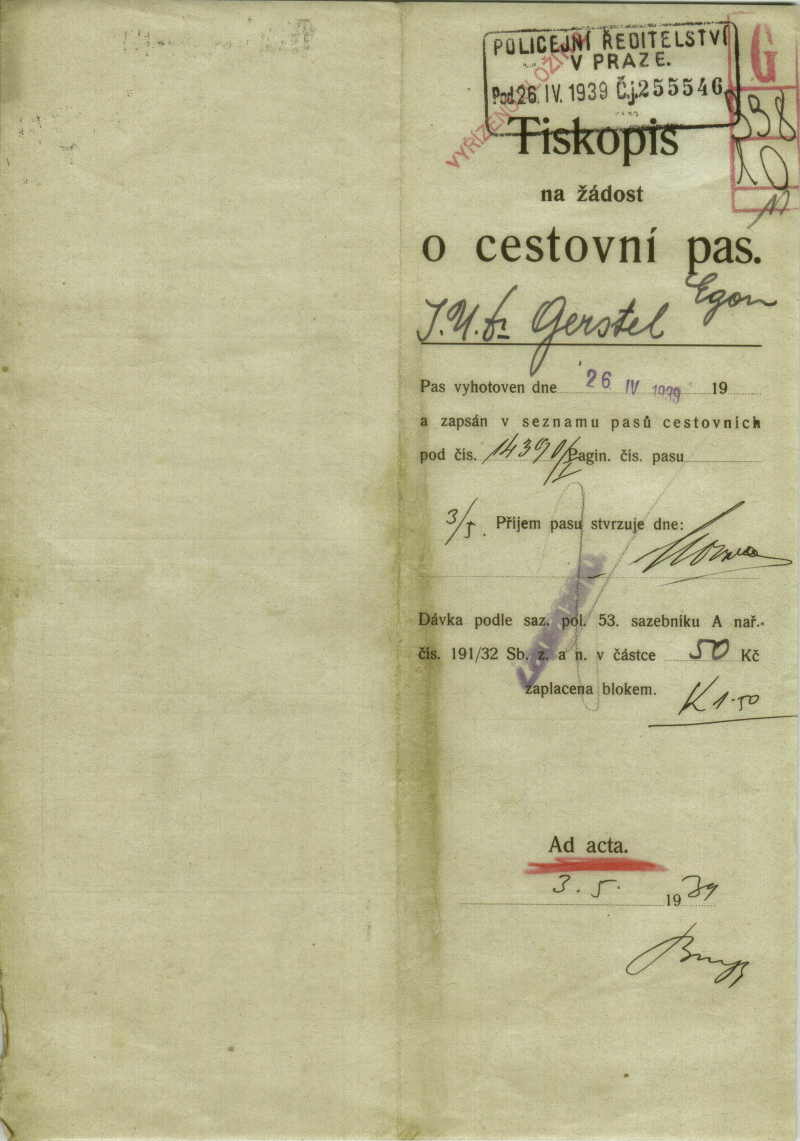 POLICEJNÍ ŘEDITELSTVÍ
V PRAZE.
Pod. 26. IV. 1939 Č.j. 255546
G
398
10
VYŘÍZENO
Tiskopis
na žádost
o cestovní pas.
J.U.Dr. Gerstel Egon
Pas vyhotoven dne 26 IV 1939 19
a zapsán v seznamu pasů cestovních
pod čís. 14390/I Pagin. čís. pasu
3/5. Příjem pasu stvrzuje dne:
Dávka podle saz. pol. 53. sazebníku A nař.
čís. 191/32 Sb. z. a n. v částce 50 Kč
zaplacena blokem.
K 1·50
Ad acta.
3. 5. 1939